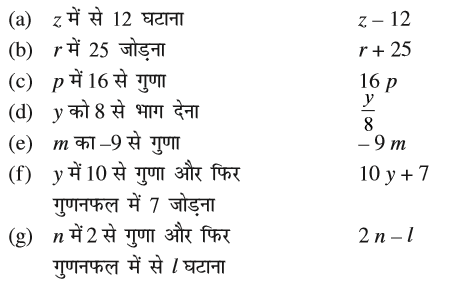 (a) z में से 12 घटाना z – 12
(b) r में 25 जोड़ना r + 25
(c) p में 16 से गुणा 16 p
(d) y को 8 से भाग देना y/8
(e) m का –9 से गुणा – 9 m
(f) y में 10 से गुणा और फिर 10 y + 7
गुणनफल में 7 जोड़ना
(g) n में 2 से गुणा और फिर 2 n – l
गुणनफल में से l घटाना